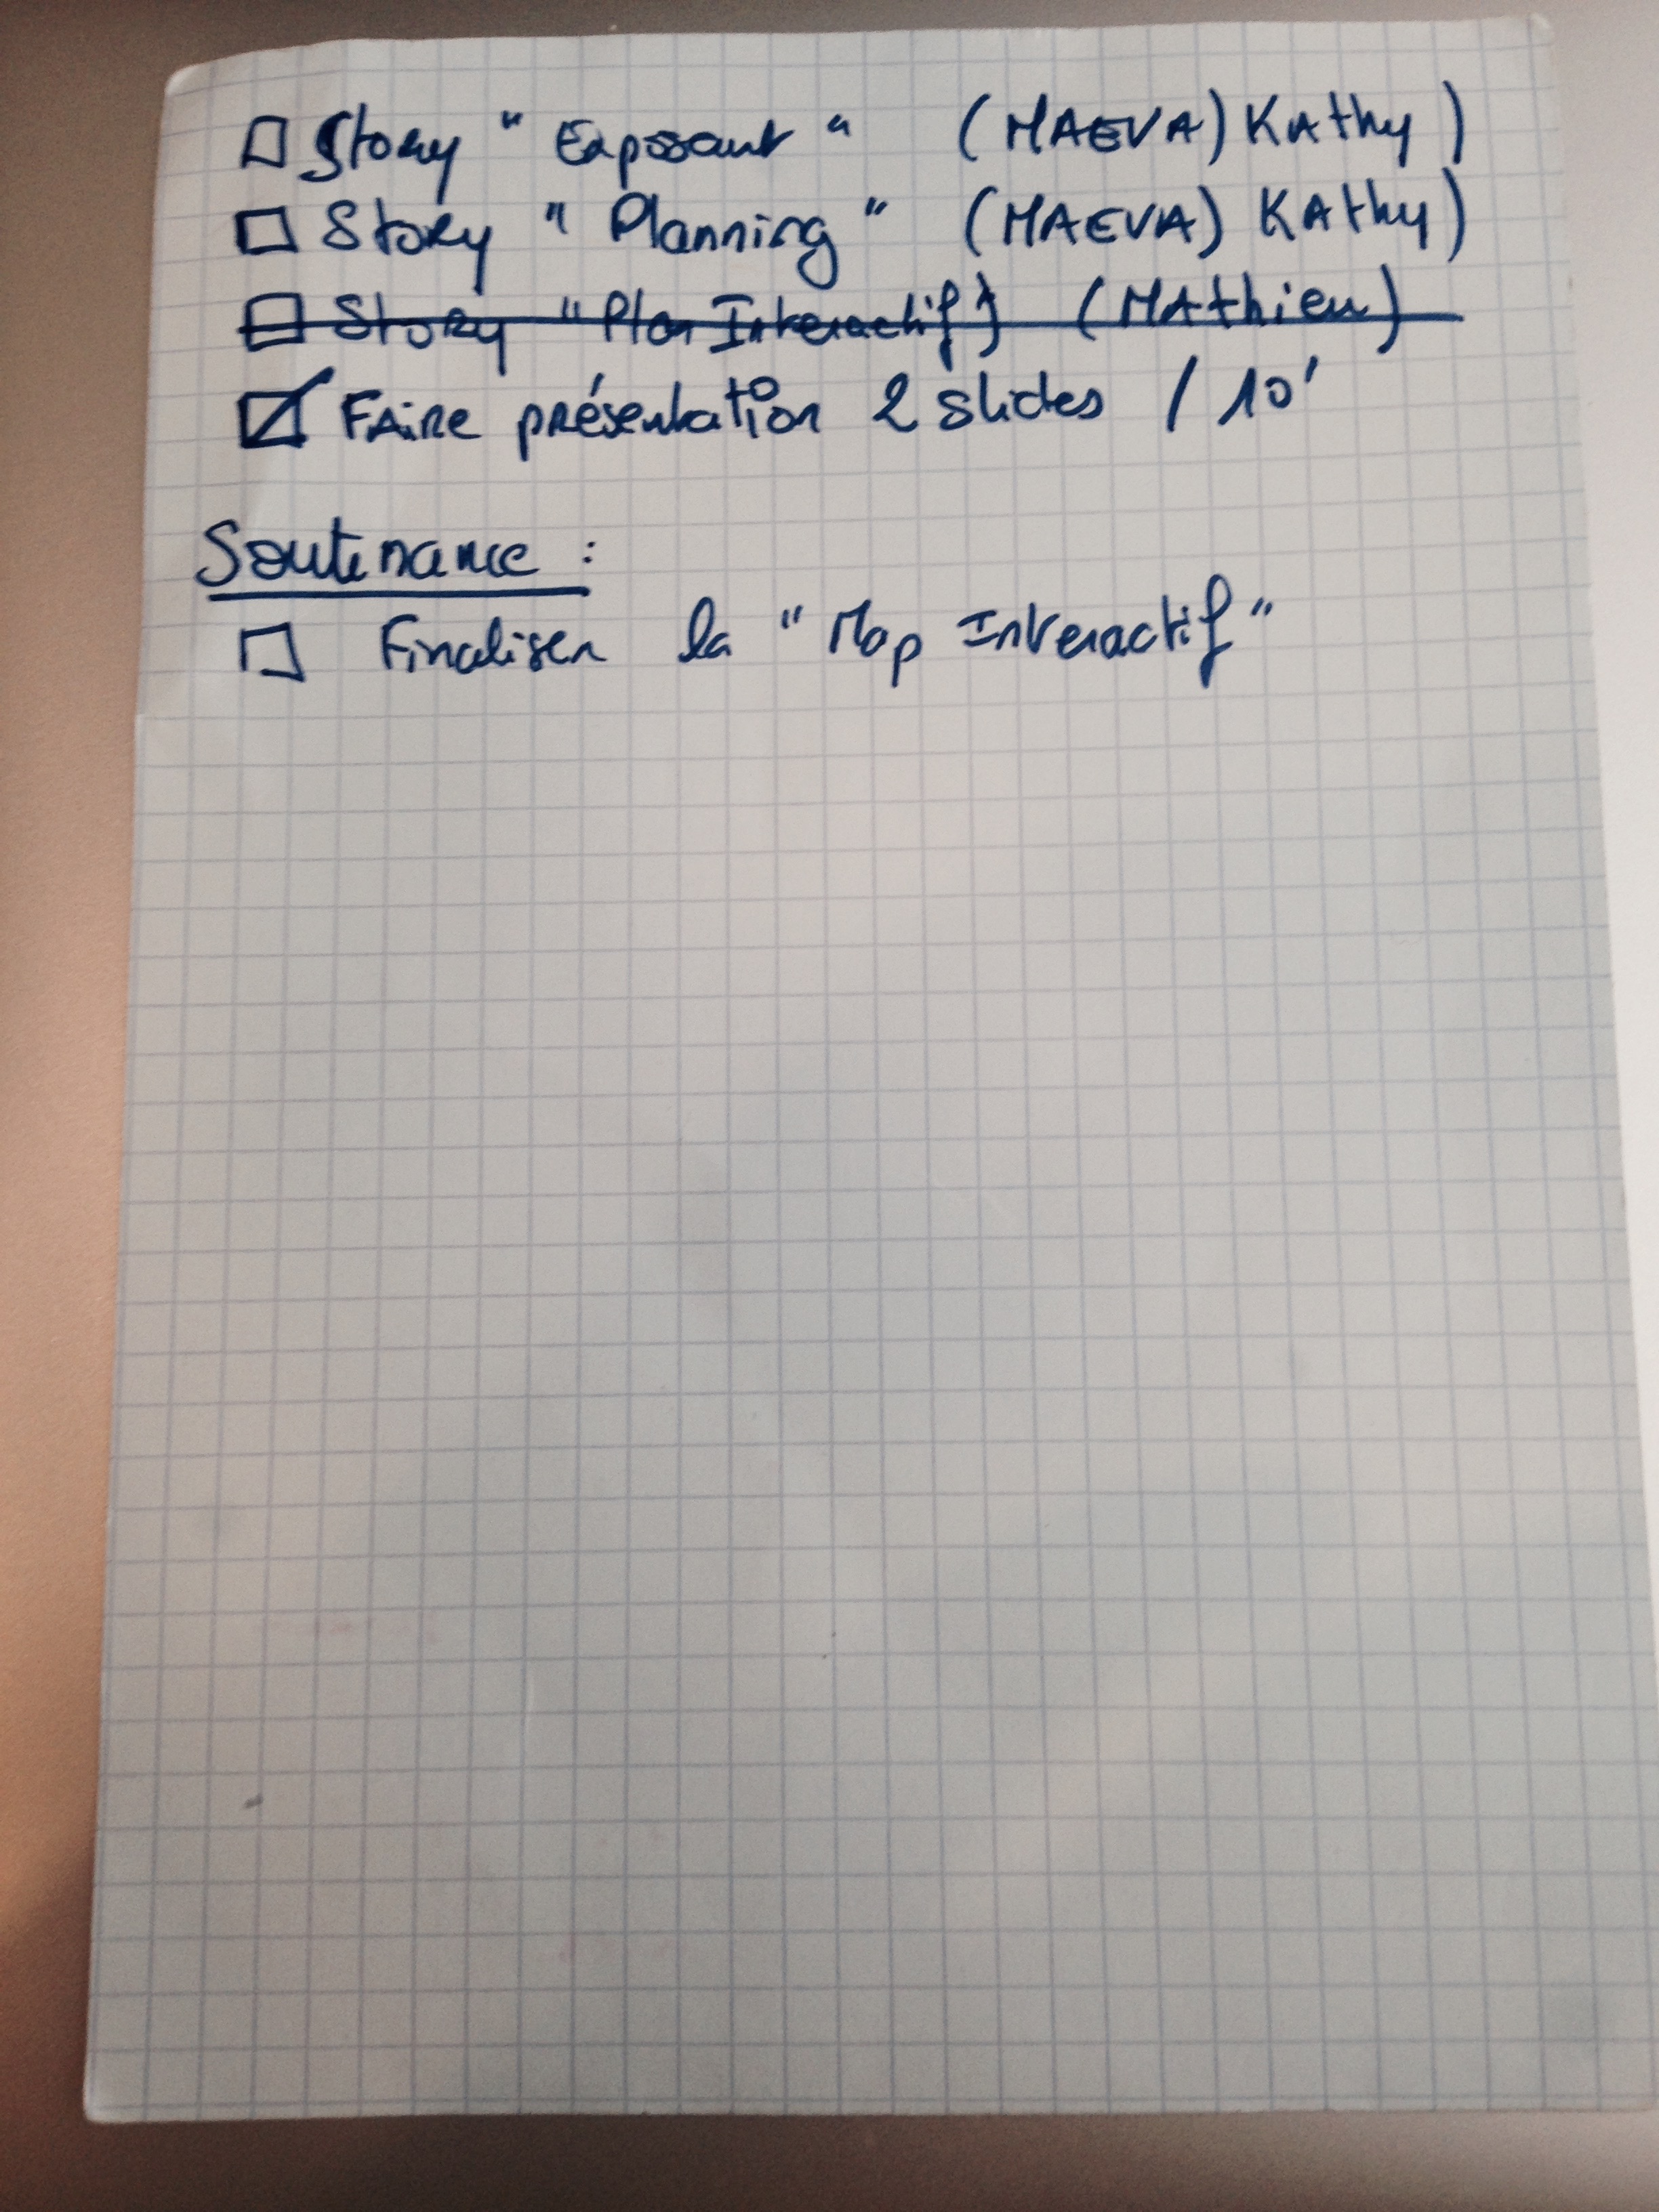 Story " Exposant " (MAEVA) Kathy )
Story " Planning " (MAEVA) Kathy)
Story " Plan Interactif ) (Mathieu)
Faire présentation 2 slides / 10'
Soutenance :
Finaliser la " Map Interactif "